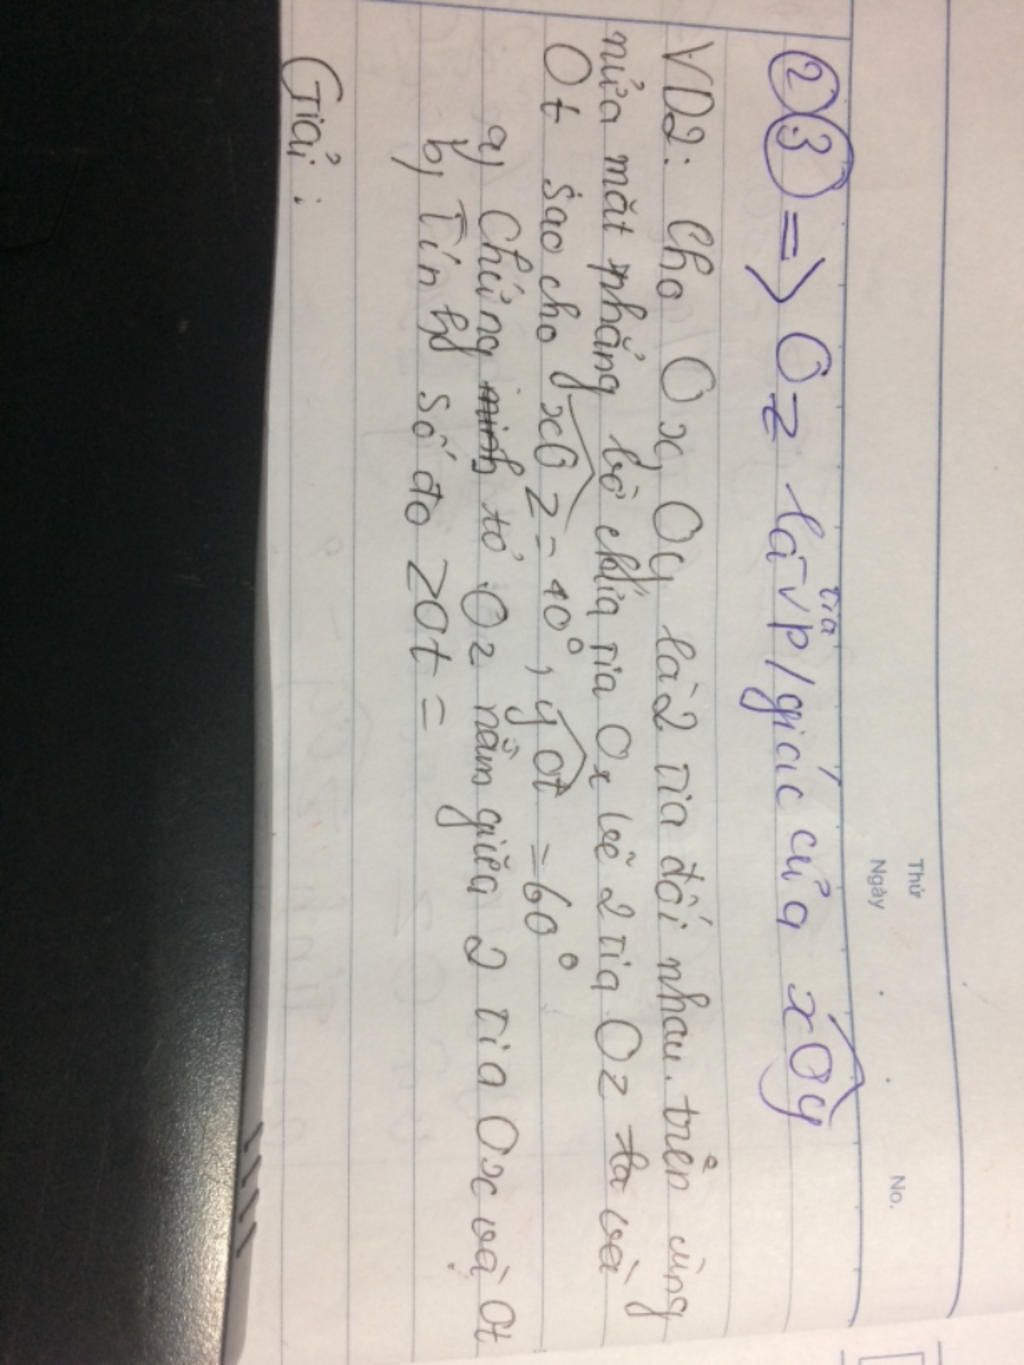 Thứ
Ngày
No.
②③ => Oz là tia p/giác của xOy
VD2: Cho Ox, Oy là 2 tia đối nhau. trên cùng
nửa mặt phẳng bờ chứa tia Ox vẽ 2 tia Oz và
Ot sao cho xOz = 40°, yOt = 60°
a, Chứng tỏ Oz nằm giữa 2 tia Ox và Ot
b, Tính số đo zOt =
Giải: